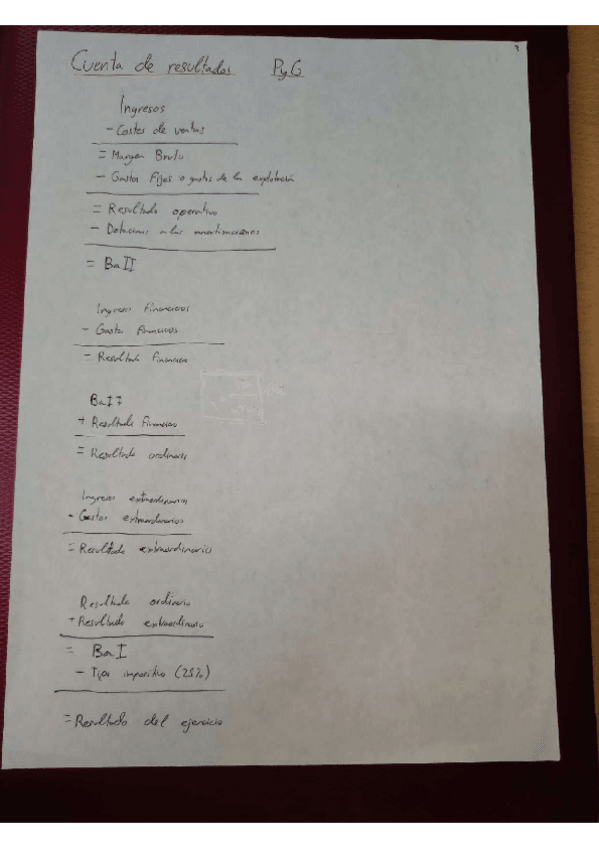 3
Cuenta de resultados PyG
Ingresos
- Costes de ventas
= Margen Bruto
- Gastos Fijos o gastos de la explotación
= Resultado operativo
- Dotaciones a las amortizaciones
= BaII
Ingresos Financieros
- Gastos financieros
= Resultado Financiero
BaII
+ Resultado Financiero
= Resultado ordinario
Ingresos extraordinarios
- Gastos extraordinarios
= Resultado extraordinario
Resultado ordinario
+ Resultado extraordinario
= BaI
- Tipo impositivo (25%)
= Resultado del ejercicio